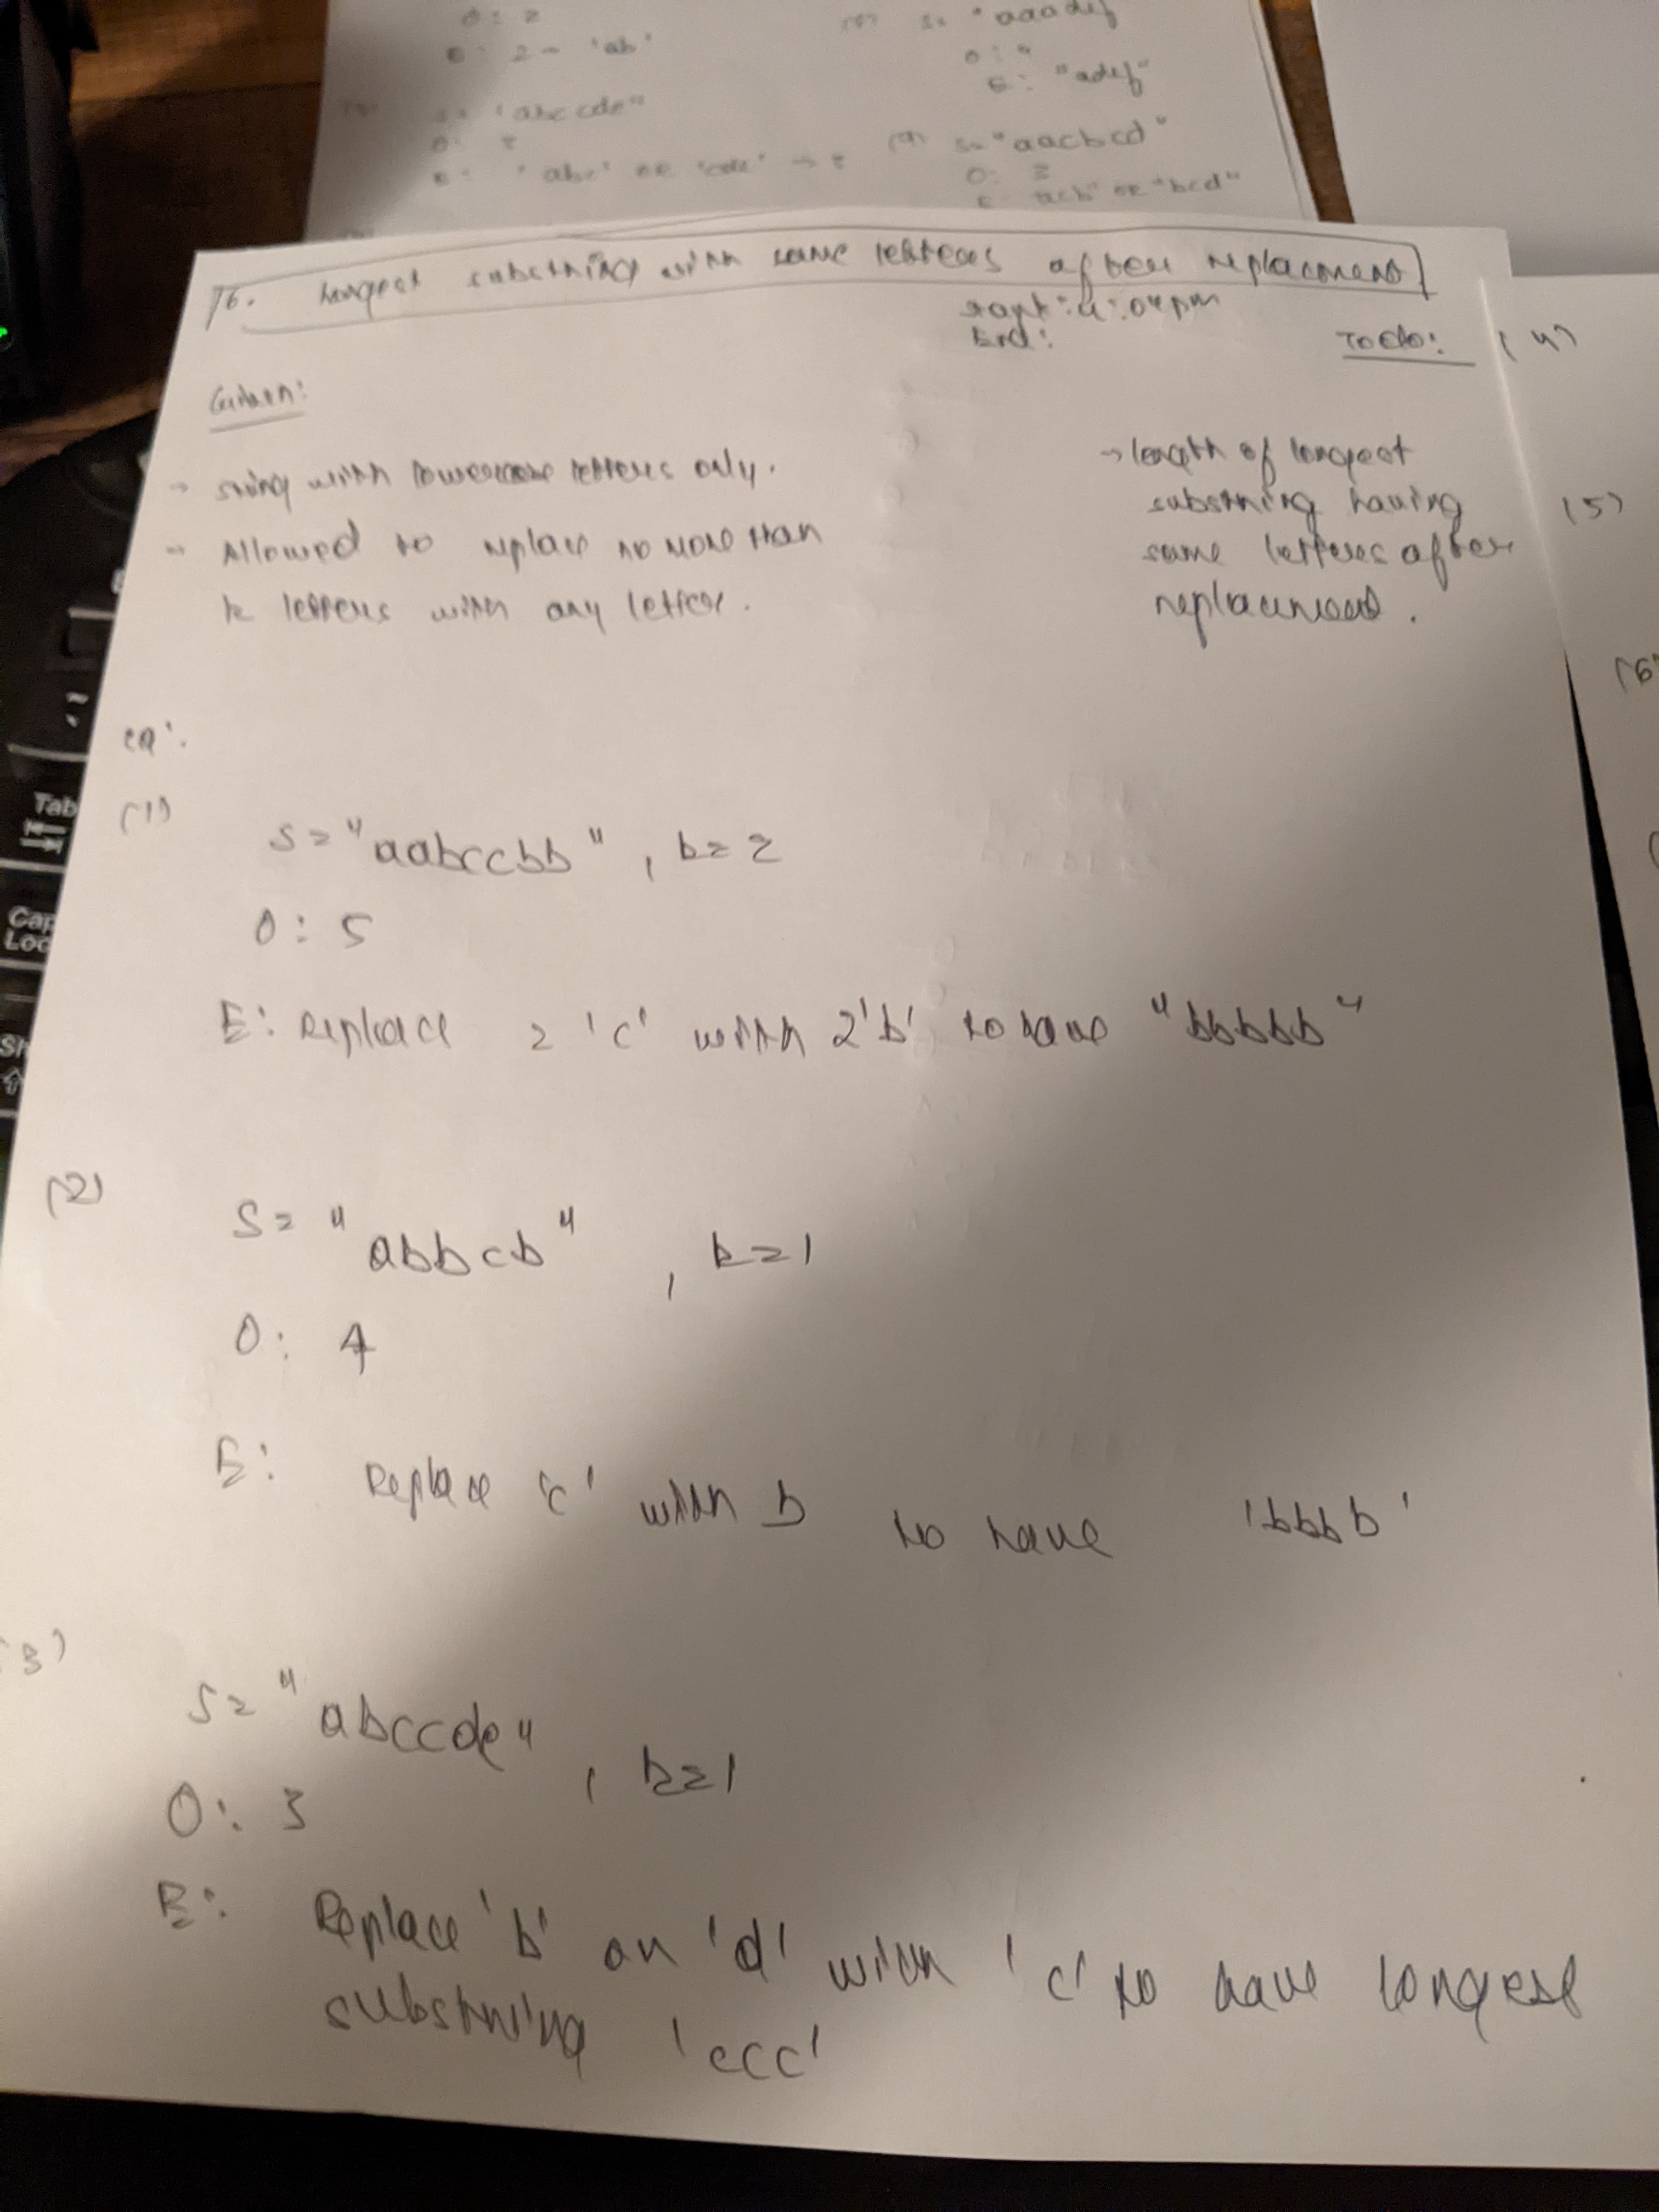 O: 2
E: 2 - 'ab'
s= "abccde"
E: 'abc' or 'cde' → 3
s= "aaadef
O: 4
E: "adef"
(9) s= "aacbcd"
O: 3
E "acb" or "bcd"
76. Longest substring with same letters after replacement
Start: 4:04pm
End:
Given:
→ string with lowercase letters only.
→ Allowed to replace no more than
k letters with any letter.
ToDo:
→ length of longest
substring having
same letters after
replacement.
(4)
(5)
(6)
eg:
(1)
S= "aabccbb", k=2
O: 5
E: Replace 2 'c' with 2 'b' to have "bbbbb"
(2)
S= "abbcb", k=1
O: 4
E: Replace 'c' with b to have 'bbbb'
(3)
S= "abccde", k=1
O: 3
E: Replace 'b' or 'd' with 'c' to have longest
substring 'ccc'
Tab
Cap
Loc
Sh